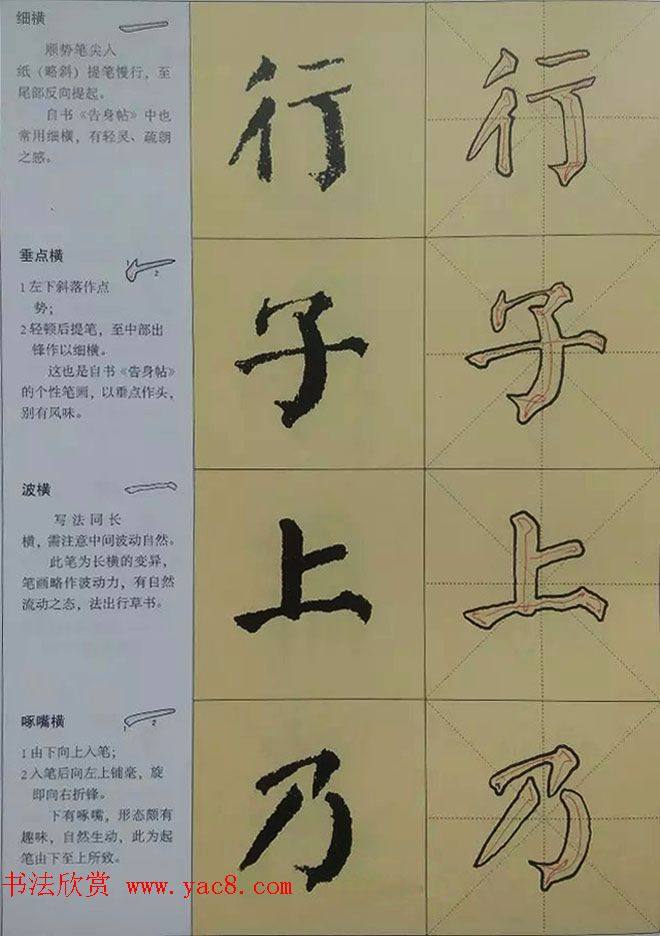 细横
顺势笔尖入
纸（略斜）提笔慢行，至
尾部反向提起。
自书《告身帖》中也
常用细横，有轻灵、疏朗
之感。
行
垂点横
1
2
1 左下斜落作点
势；
2 轻顿后提笔，至中部出
锋作以细横。
这也是自书《告身帖》
的个性笔画，以垂点作头，
别有风味。
子
波横
写法同长
横，需注意中间波动自然。
此笔为长横的变异，
笔画略作波动力，有自然
流动之态，法出行草书。
上
啄嘴横
1
2
1 由下向上入笔；
2 入笔后向左上铺毫，旋
即向右折锋。
下有啄嘴，形态颇有
趣味，自然生动，此为起
笔由下至上所致。
乃
书法欣赏 www.yac8.com